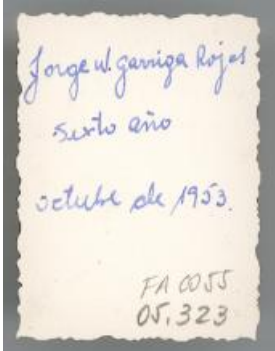 Jorge W. Garriga Rojas
Sexto año
octubre de 1953.
FA 0055
05.323